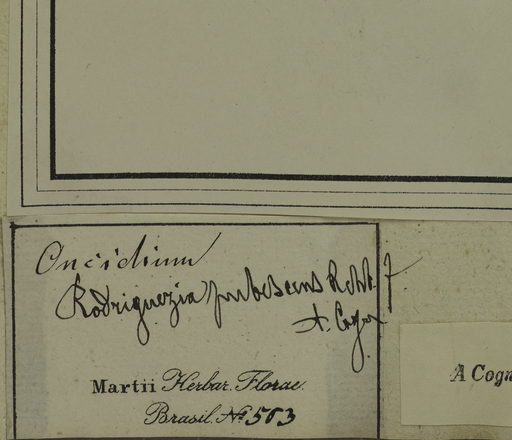 Oncidium
Rodriguezia pubescens Rchb. f
A. Cogn
Martii Herbar. Florae
Brasil. No 503
A Cogn